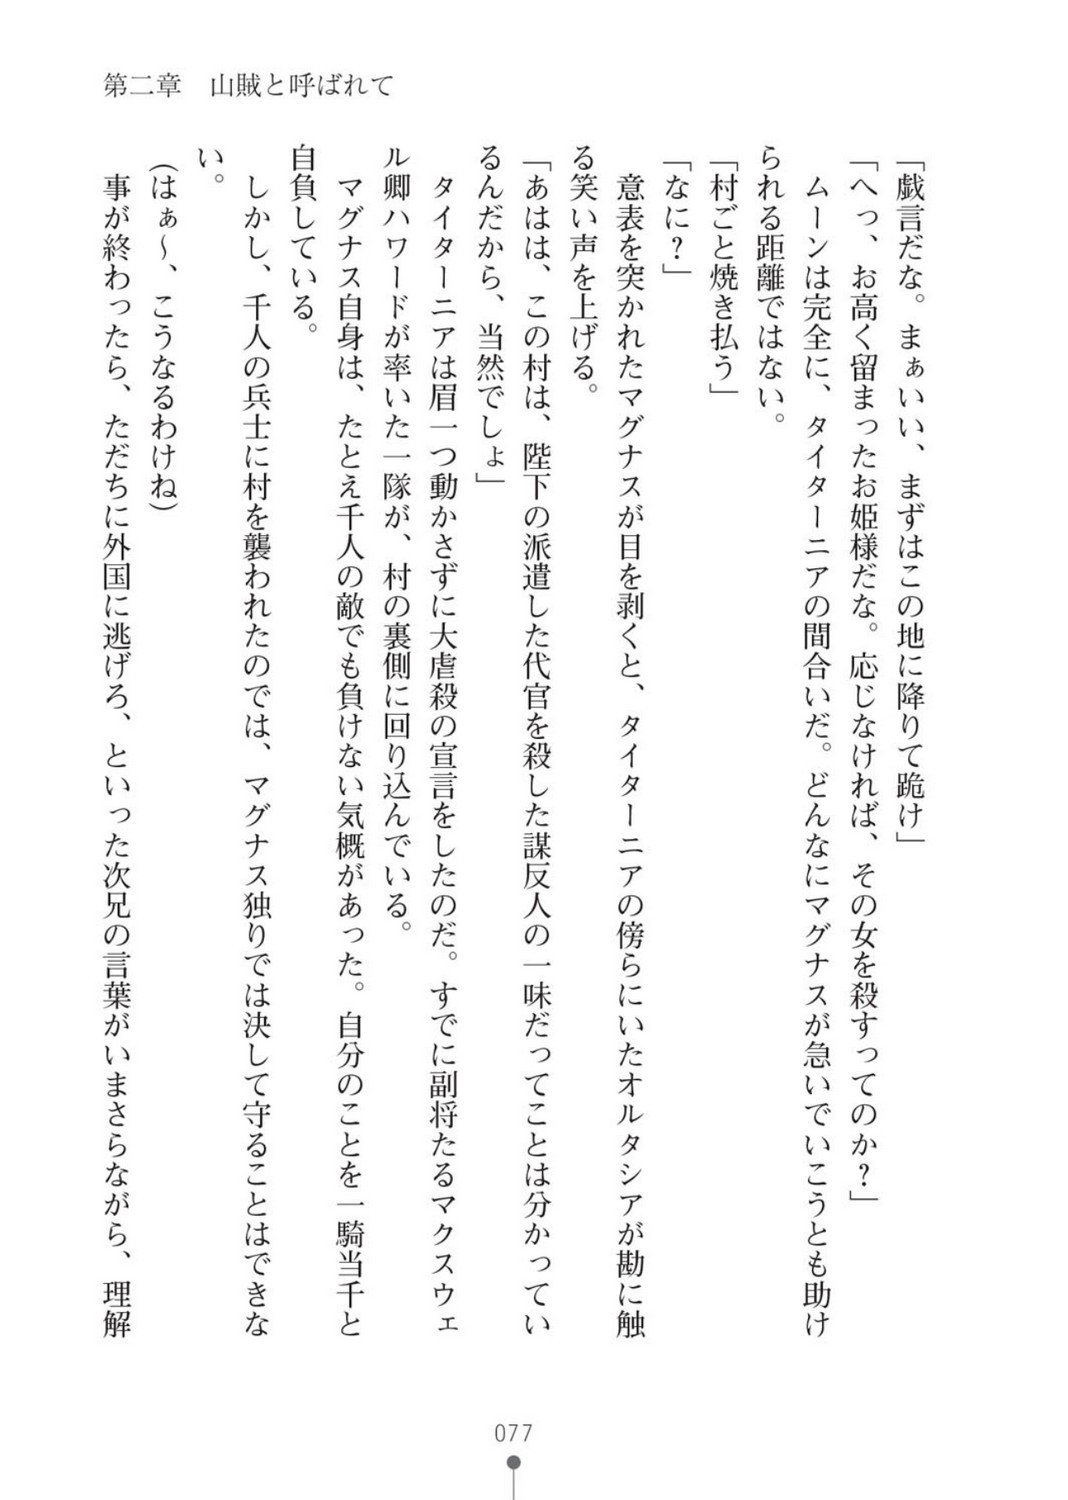 第二章　山賊と呼ばれて
「戯言だな。まぁいい、まずはこの地に降りて跪け」
「へっ、お高く留まったお姫様だな。応じなければ、その女を殺すってのか？」
　ムーンは完全に、タイターニアの間合いだ。どんなにマグナスが急いでいこうとも助け
られる距離ではない。
「村ごと焼き払う」
「なに？」
　意表を突かれたマグナスが目を剥くと、タイターニアの傍らにいたオルタシアが勘に触
る笑い声を上げる。
「あはは、この村は、陛下の派遣した代官を殺した謀反人の一味だってことは分かってい
るんだから、当然でしょ」
　タイターニアは眉一つ動かさずに大虐殺の宣言をしたのだ。すでに副将たるマクスウェ
ル卿ハワードが率いた一隊が、村の裏側に回り込んでいる。
　マグナス自身は、たとえ千人の敵でも負けない気概があった。自分のことを一騎当千と
自負している。
　しかし、千人の兵士に村を襲われたのでは、マグナス独りでは決して守ることはできな
い。
（はぁ〜、こうなるわけね）
　事が終わったら、ただちに外国に逃げろ、といった次兄の言葉がいまさらながら、理解
077